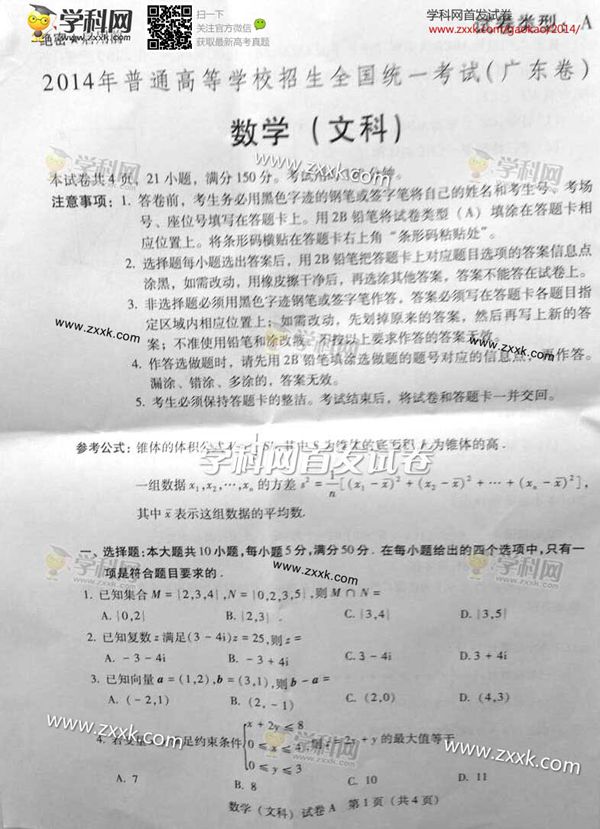 学科网 WWW.ZXXK.COM
扫一扫
关注官方微信
获取最新高考真题
学科网首发试卷
www.zxxk.com/gaokao/2014/
绝密★
试卷类型：A
2014年普通高等学校招生全国统一考试(广东卷)
数学（文科）
学科网
www.zxxk.com
本试卷共4页，21小题，满分150分。考试
注意事项：1. 答卷前，考生务必用黑色字迹的钢笔或签字笔将自己的姓名和考生号、考场
号、座位号填写在答题卡上。用2B铅笔将试卷类型（A）填涂在答题卡相
应位置上。将条形码横贴在答题卡右上角“条形码粘贴处”。
2. 选择题每小题选出答案后，用2B铅笔把答题卡上对应题目选项的答案信息点
涂黑，如需改动，用橡皮擦干净后，再选涂其他答案，答案不能答在试卷上。
3. 非选择题必须用黑色字迹钢笔或签字笔作答，答案必须写在答题卡各题目指
定区域内相应位置上；如需改动，先划掉原来的答案，然后再写上新的答
案；不准使用铅笔和涂改液，不按以上要求作答的答案无效。
www.zxxk.com
学科网
www.zxxk.com
4. 作答选做题时，请先用2B铅笔填涂选做题的题号对应的信息点，再作答。
漏涂、错涂、多涂的，答案无效。
5. 考生必须保持答题卡的整洁。考试结束后，将试卷和答题卡一并交回。
参考公式：锥体的体积公式 其中S为锥体的底面积，h为锥体的高．
学科网首发试卷
一组数据x₁,x₂,…,xₙ的方差s²=1/n[(x₁−x̄)²+(x₂−x̄)²+…+(xₙ−x̄)²],
其中x̄表示这组数据的平均数．
学科网
www.zxxk.com
学科网
一、选择题：本大题共10小题，每小题5分，满分50分．在每小题给出的四个选项中，只有一
项是符合题目要求的．
1. 已知集合M={2,3,4},N={0,2,3,5},则M∩N=
A. {0,2} B. {2,3} C. {3,4} D. {3,5}
2. 已知复数z满足(3−4i)z=25,则z=
A. −3−4i B. −3+4i C. 3−4i D. 3+4i
3. 已知向量a=(1,2),b=(3,1),则b−a=
A. (−2,1) B. (2,−1) C. (2,0) D. (4,3)
www.zxxk.com
学科网
www.zxxk.com
4. 若变量 足约束条件{x+2y≤8 0≤x≤4 0≤y≤3 则z=2x+y的最大值等于
A. 7 B. 8 C. 10 D. 11
数学（文科）试卷A 第1页（共4页）